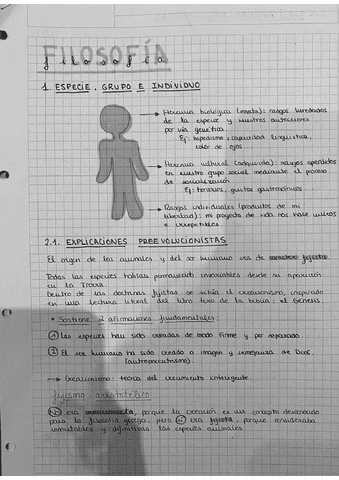 FILOSOFÍA
filosofía
1. ESPECIE, GRUPO E INDIVIDUO
Herencia biológica (innata): rasgos heredados
de la especie y nuestros antecesores
por vía genética.
Ej: bipedismo, capacidad lingüística,
color de ojos...
Herencia cultural (adquirida): rasgos aprendidos
en nuestro grupo social mediante el proceso
de socialización
Ej: horarios, gustos gastronómicos.
Rasgos individuales (productos de mi
libertad): mi proyecto de vida nos hace únicos
e irrepetibles.
2.1. EXPLICACIONES PREEVOLUCIONISTAS
El origen de los animales y del ser humano era de fijista
Todas las especies habían permanecido invariables desde su aparición
en la Tierra.
Dentro de las doctrinas fijistas se incluía el creacionismo, inspirado
en una lectura literal del libro de la biblia: el Génesis
* Sostiene 2 afirmaciones fundamentales:
1 Las especies han sido creadas de modo firme y por separado.
2 El ser humano ha sido creado a imagen y semejanza de Dios.
(antropocentrismo).
→ Creacionismo: teoría del
fijismo aristotélico
NO era creacionista, porque la creación es un concepto desconocido
para la filosofía griega, pero SI era fijista, porque consideraba
inmutables y definitivas las especies animales